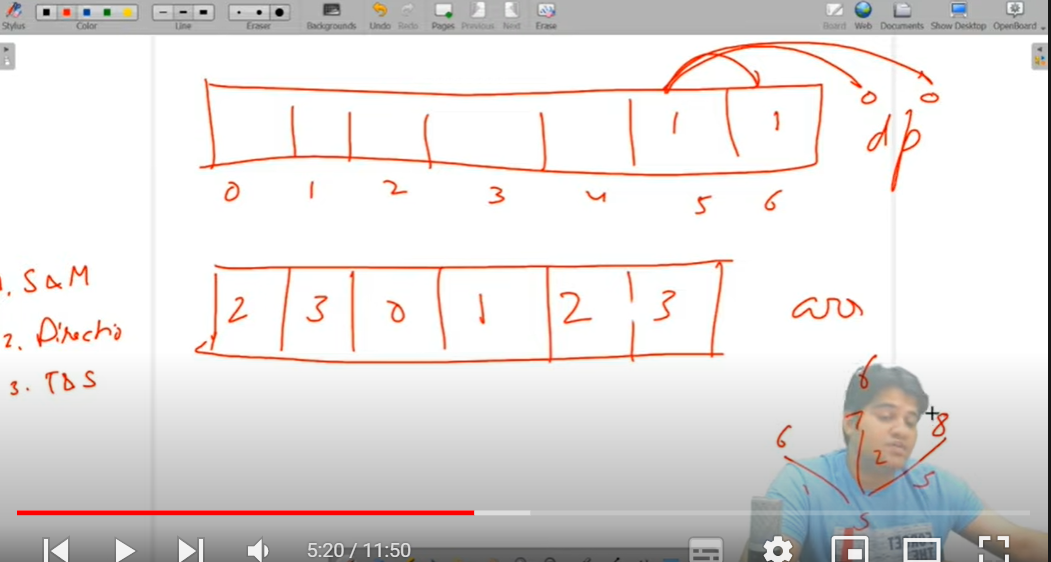 Stylus Color Line Eraser Backgrounds Undo Redo Pages Previous Next Erase Board Web Documents Show Desktop OpenBoard
0 0
1 1 dp
0 1 2 3 4 5 6
1. S & M
2 3 0 1 2 3 arr
2. Directio
3. T & S
6 7 8
1 2 5
5
5:20 / 11:50